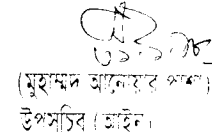 (মুহাম্মদ আনোয়ার পাশা)
উপসচিব (আইন।